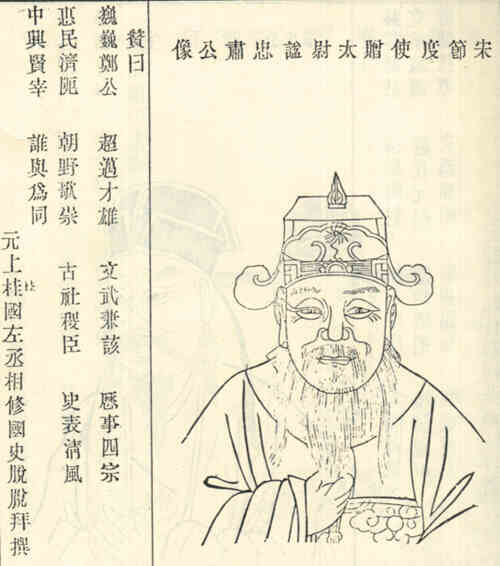 宋節度使贈太尉謚忠肅公像
贊曰
巍巍鄭公 超邁才雄 文武兼該 歷事四宗
惠民濟阨 朝野歌崇 古社稷臣 史表清風
中興賢宰 誰與爲同
元上桂國左丞相修國史脫脫拜撰